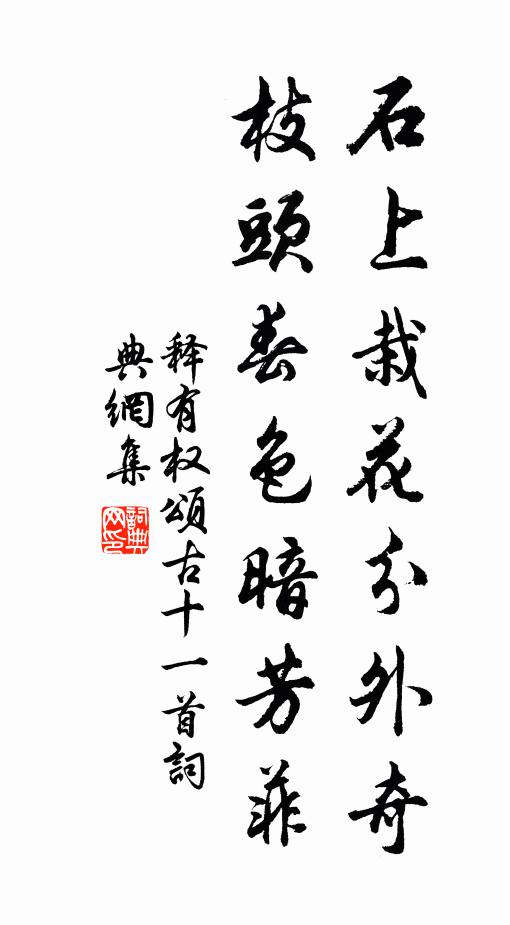 石上栽花分外奇
枝頭春色暗芳菲
释有权頌古十一首詞
典網集
詞典
网印